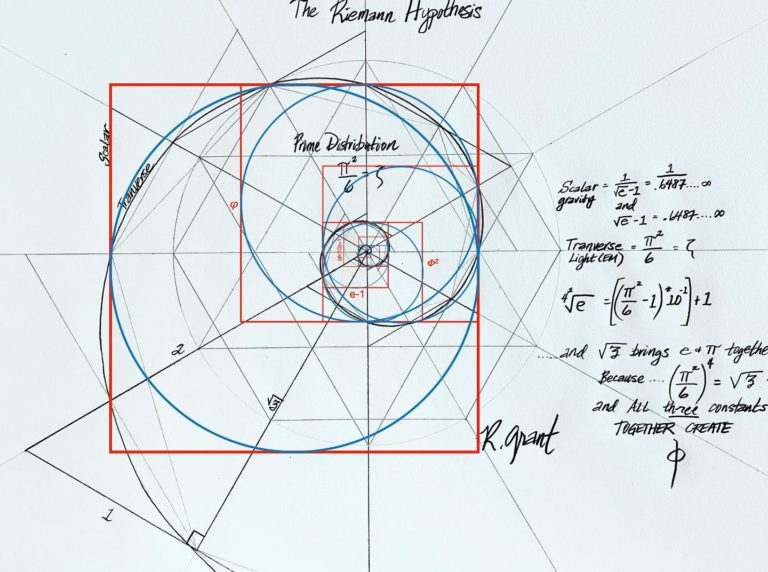 The Riemann Hypothesis
Scalar
Tranverse
Prime Distribution
π²/6 = ζ
φ
φ²
e-1
2
√3
1
R. Grant
Scalar gravity = 1/(√e - 1) = 1/.6487....∞
and
√e - 1 = .6487....∞
Tranverse Light (EM) = π²/6 = ζ
⁴√e = [(π²/6 - 1) * 10⁻¹] + 1
.....and √3 brings e + π togethe
Because .... (π²/6)⁴ = √3
and ALL three constants
TOGETHER CREATE
φ